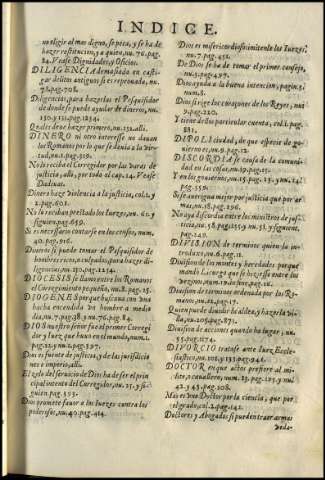 INDICE.
no eligir al mas digno, se peca, y se ha de
hazer restitucion, y a quien, nu. 76. pag.
84. Vease Dignidades, y Oficios.
DILIGENCIA demasiada en casti-
gar delitos antiguos si es reprouada, nu.
78. pag. 708.
Diligencias, para hazerlas el Pesquisidor
de donde se puede ayudar de dineros, nu.
130. y 131. pag. 1234.
Quales deue hazer primero, nu. 132. alli.
DINERO ni otro interesse no dauan
los Romanos por lo que se deuia a la vir-
tud, nu.
No les reciba el Corregidor por las varas de
justicia, alli, por todo el cap. 14. Vease
Dadiuas.
Dinero haze violencia a la justicia, col. 2. y
2. pag. 603.
No lo reciban prestado los Iuezes, nu. 62. y
siguien. pag. 659.
Si es necessario contarse en los censos, num.
40. pag. 916.
Dineros si puede tomar el Pesquisidor de
hombres ricos, o culpados, para hazer di-
ligencias, nu. 130. pag. 1234.
DIOCESIS se llama entre los Romanos
el Corregimiento pequeño, nu. 8. pag. 25.
DIOGENES por que buscaua con vna
hacha encendida vn hombre a medio
dia, nu. 7. pag. 38. y nu. 76. pag. 84.
DIOS nuestro señor fue el primer Corregi
dor y Iuez que huuo en el mundo, num. 1.
pag. 23. y nu. 2. pag. 597.
Dios es fuente de justicia, y de las jurisdicio
nes e imperio, alli.
El zelo del seruicio de Dios ha de ser el prin
cipal intento del Corregidor, nu. 25. y si-
guien. pag. 593.
Dios promete fauor a los Iuezes contra los
poderosos, nu. 40. pag. 414.
Dios es misericordiosissimo con los Iuezes,
nu. 7. pag. 452.
De Dios se ha de tomar el primer consejo,
nu. 5. pag. 497.
Dios ayuda a la buena intencion, pagin. 3.
num. 8.
Dios si rige los coraçones de los Reyes, nu.
9. pag. 220.
Y tiene dellos particular cuenta, col. 1. pag.
881.
DIPOLI ciudad, de que especie de go-
uierno es, nu. 9. pag. 12.
DISCORDIA es causa de la comuni-
dad en las cosas, nu. 39. pag. 15.
Y en los gouiernos, nu. 15. pag. 25. y nu. 14.
pag. 550.
Si se auerigua mejor por justicia que por ar
mas, nu. 18. pag. 296.
No aya discordia entre los ministros de jus-
ticia, nu. 38. pag. 1255. y nu. 51. y siguient.
pag. 149.
DIVISION de terminos quien la in-
troduxo, nu. 6. pag. 11.
Division de los montes y heredades por que
mando Licurgo que se hiziesse entre los
vezinos, num. 17. adfinem. pag. 16.
Diuision de caminos ordenada por los Ro-
manos, nu. 21. pag. 17.
Quien puede diuidir las aldeas, y hazerla vi-
lla, nu. 205. pag. 871.
Diuision de acciones quando ha lugar, nu.
55. pag. 1174.
DIVORCIO tratase ante Iuez Ecle-
siastico, nu. 101. y 131. pag. 446.
DOCTOR en que actos prefiere al mi-
lite, o cauallero, num. 25. pag. 103. y nu.
42. y 43. pag. 108.
Mas es vno Doctor por la ciencia, que por
el grado, col. 2. pag. 142.
Doctores y Abogados si pueden traer armas
veda-